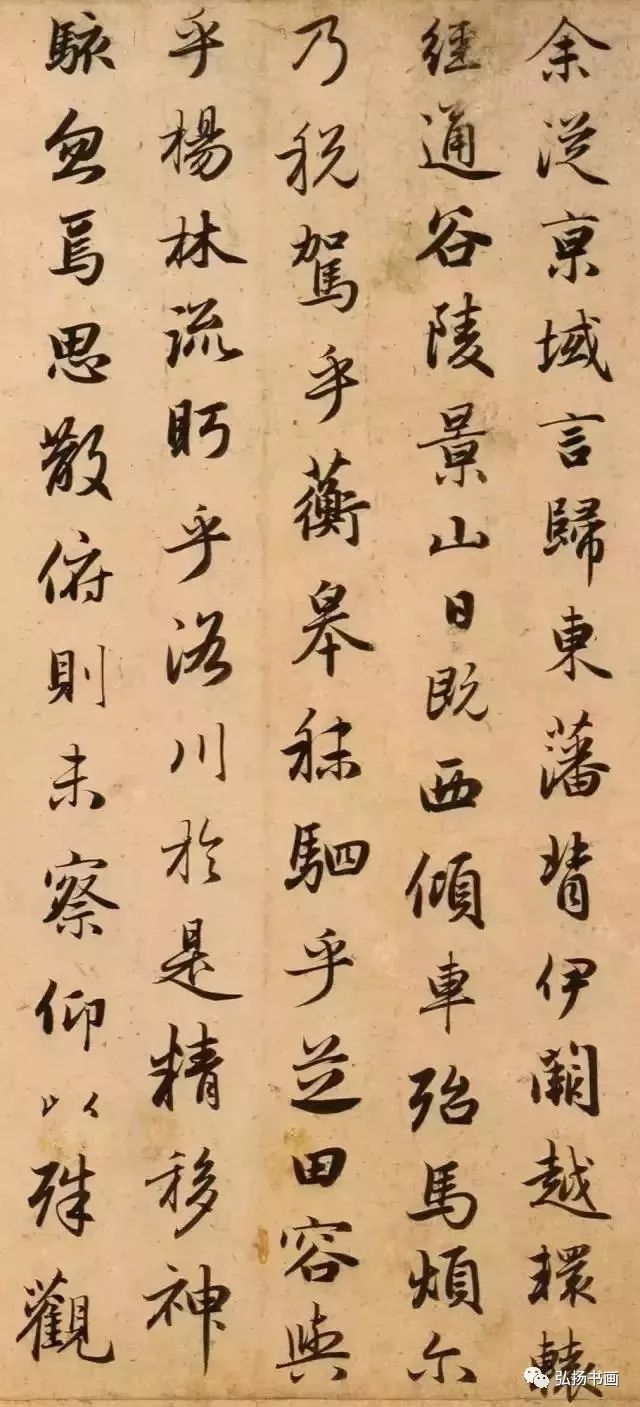 余従京域言歸東藩背伊闕越轘轅
經通谷陵景山日既西傾車殆馬煩尓
乃税駕乎蘅皋秣駟乎芝田容與
乎楊林流眄乎洛川於是精移神
駭忽焉思散俯則未察仰以殊觀
弘扬书画